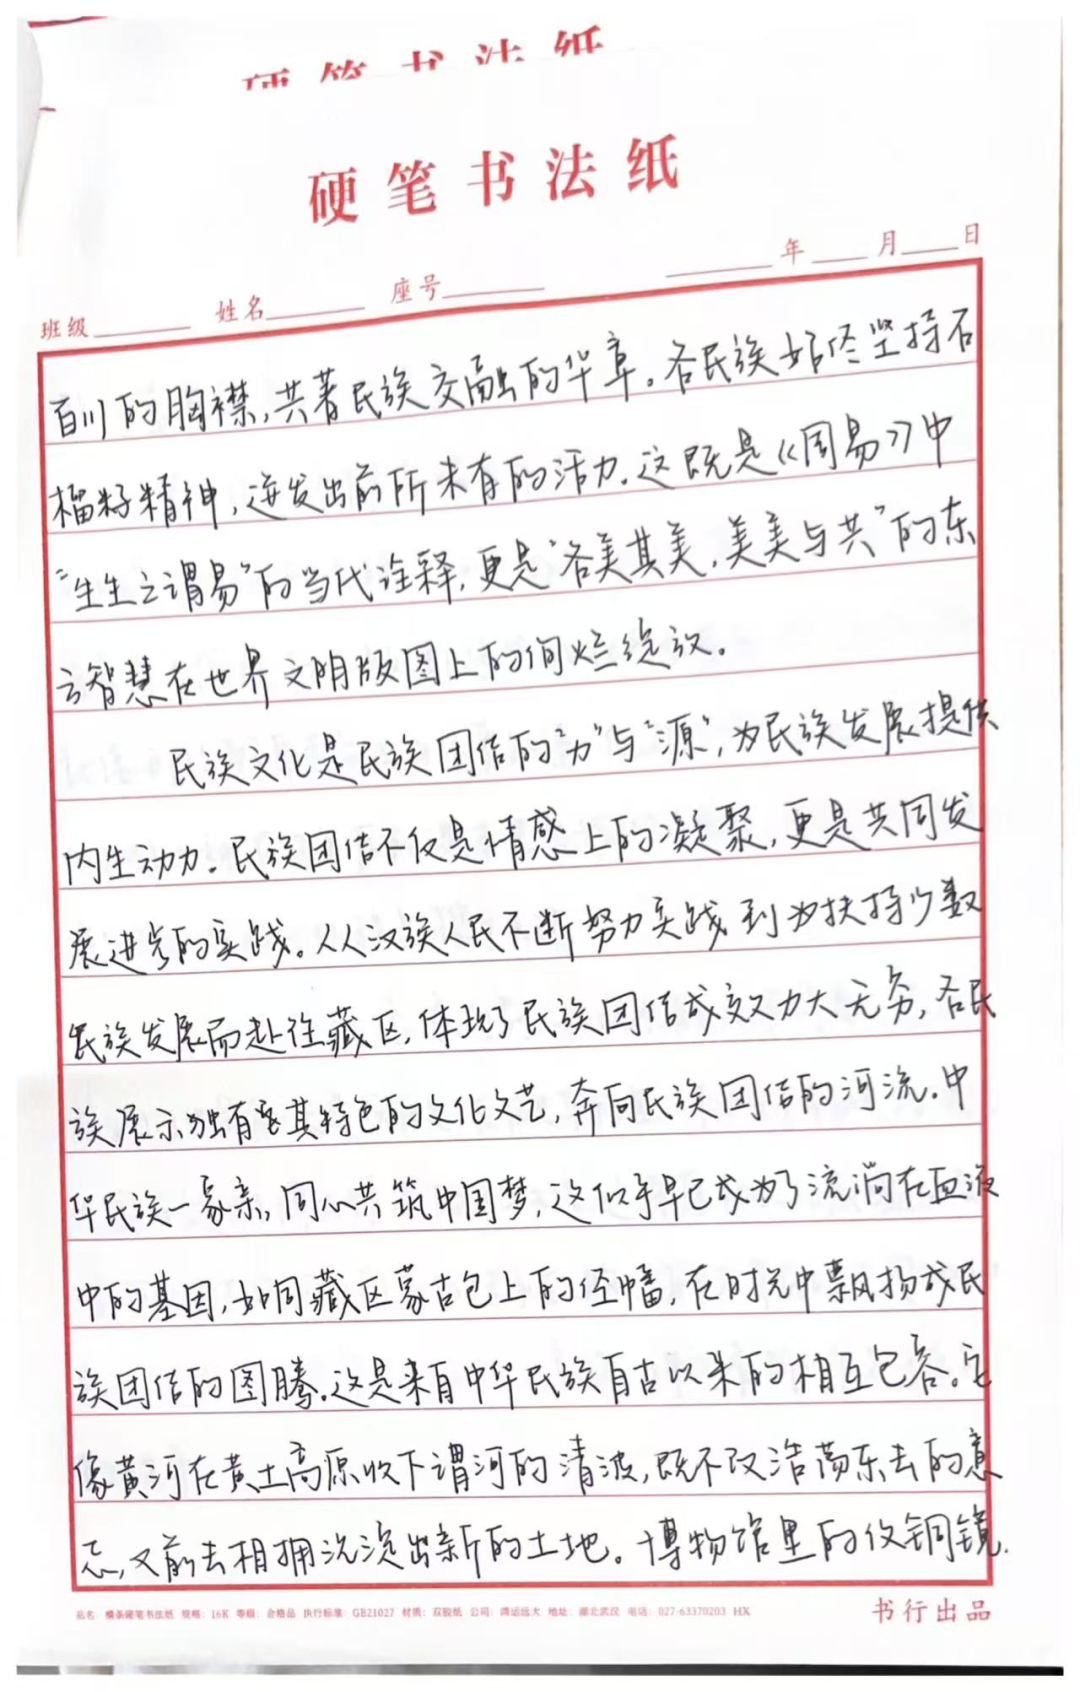 硬笔书法纸
硬笔书法纸
年 月 日
班级 姓名 座号
百川的胸襟,共著民族交融的华章。各民族始终坚持石
榴籽精神,迸发出前所未有的活力。这既是《周易》中
“生生之谓易”的当代诠释,更是“各美其美,美美与共”的东
方智慧在世界文明版图上的绚烂绽放。
民族文化是民族团结的“力”与“源”,为民族发展提供
内生动力。民族团结不仅是情感上的凝聚,更是共同发
展进步的实践。从汉族人民不断努力实践到为扶持少数
民族发展而赴往藏区,体现了民族团结成效力大无穷,各民
族展示独有其特色的文化文艺,奔向民族团结的河流。中
华民族一家亲,同心共筑中国梦,这似乎早已成为了流淌在血液
中的基因,如同藏区蒙古包上的经幡,在时光中飘扬成民
族团结的图腾。这是来自中华民族自古以来的相互包容。它
像黄河在黄土高原收下渭河的清波,既不改浩荡东去的意
志,又前去相拥沉淀出新的土地。博物馆里的仪铜镜,
品名:横条硬笔书法纸 规格:16K 等级:合格品 执行标准:GB21027 材质:双胶纸 公司:鸿运远大 地址:湖北武汉 电话:027-63370203 HX
书行出品